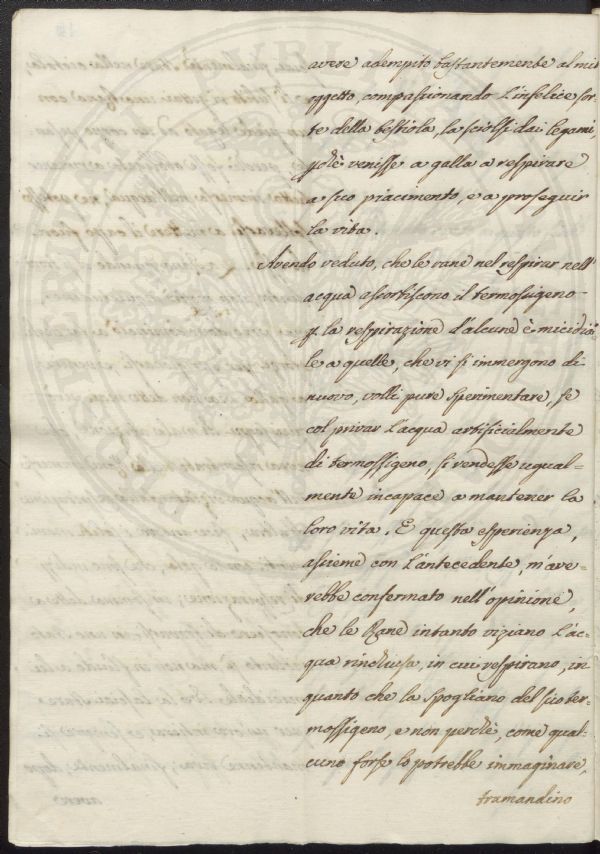 avere adempito bastantemente al mio
oggetto, compassionando l'infelice sor-
te della bestiola, la sciolsi dai legami,
pchè venisse a galla a respirare
a suo piacimento, e a proseguir
la vita.
Avendo veduto, che le rane nel respirar nell'
acqua assorbiscono il termossigeno
p la respirazione d'alcune è micidia-
le a quelle, che vi si immergono di
nuovo, volli pure sperimentare, se
col privar l'acqua artificialmente
di termossigeno, si rendesse ugual-
mente incapace a mantener la
loro vita. E questa esperienza,
assieme con l'antecedente, m'ave-
rebbe confermato nell'opinione,
che le Rane intanto viziano l'ac-
qua rinchiusa, in cui respirano, in
quanto che la spogliano del suo ter-
mossigeno, e non perchè, come qual-
cuno forse lo potrebbe immaginare,
tramandino